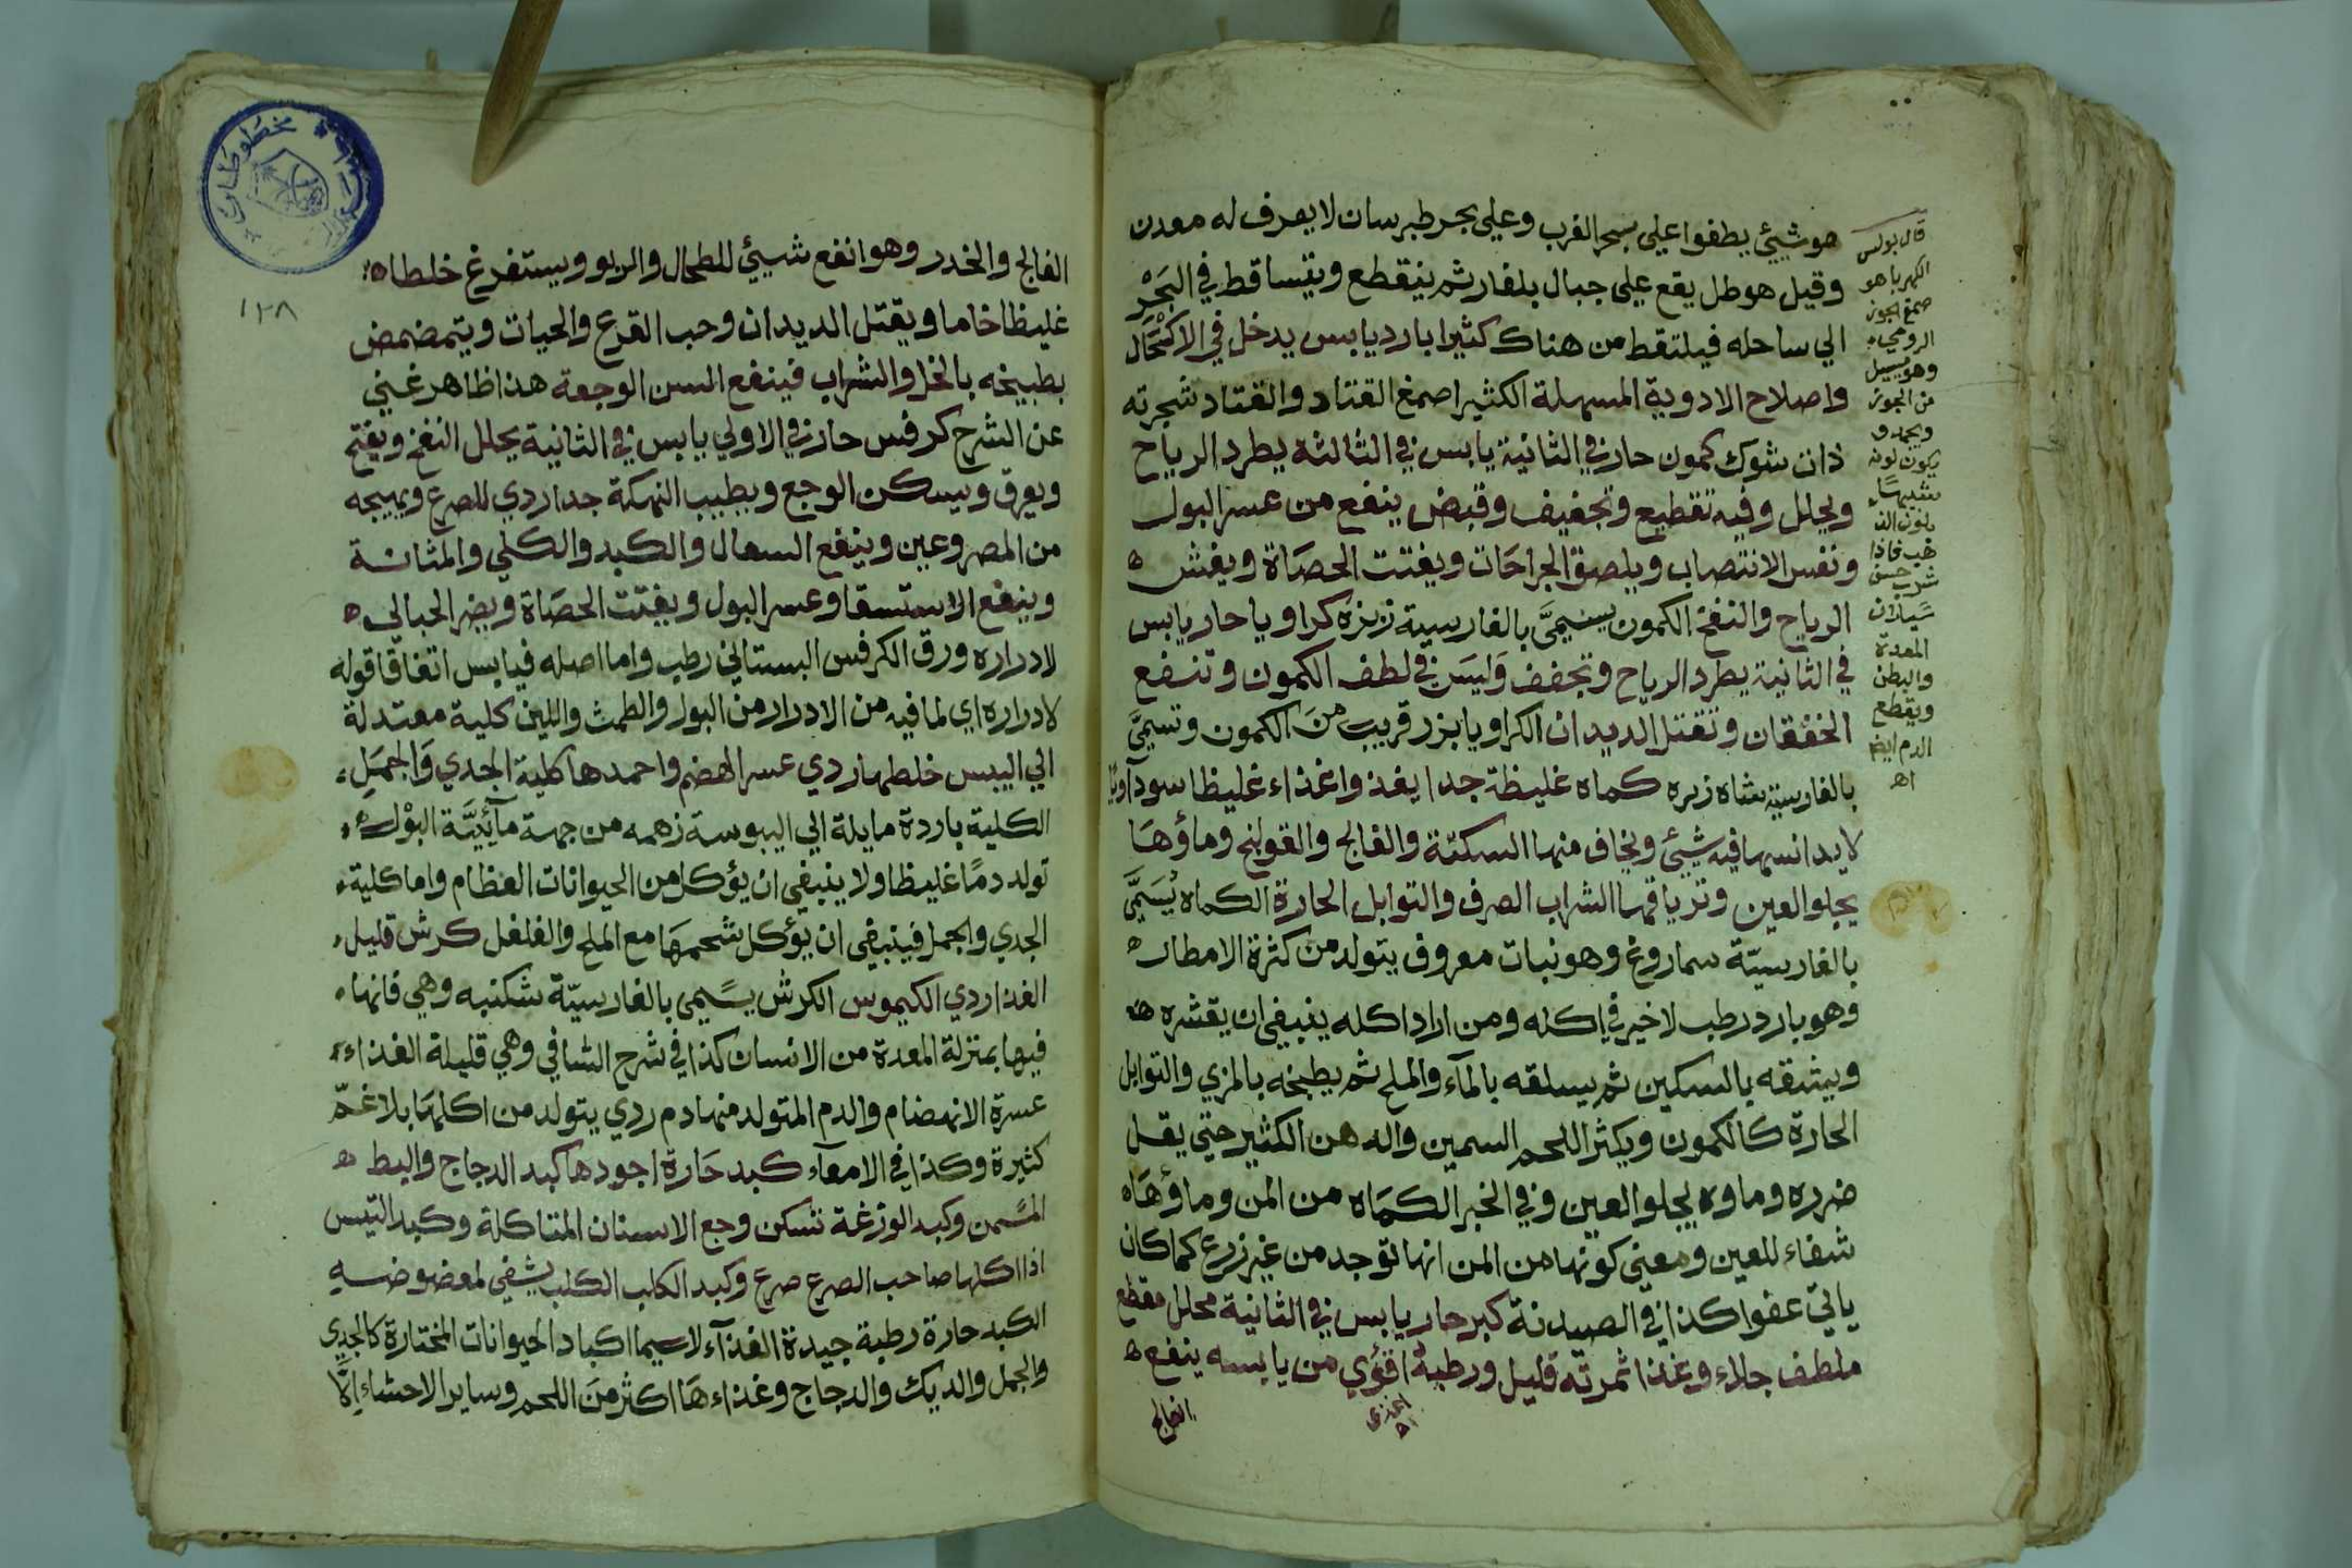 هو شيئ يطفوا علي بحر الغرب وعلي بحر طبرسان لا يعرف له معدن
وقيل هو طل يقع علي جبال بلغار ثم ينقطع ويتساقط في البَحْرِ
الي ساحله فيلتقط من هناك كثيرا بارد يابس يدخل في الاكتحال
واصلاح الادوية المسهلة الكثيرا صمغ القتاد والقتاد شجرته
ذات شوك كمون حار في الثانية يابس في الثالثة يطرد الرياح
ويحلل وفيه تقطيع وتجفيف وقبض ينفع من عسر البول
ونفس الانتصاب ويلصق الجراحَات ويفتت الحصَاة ويفش ه
الرياح والنفخ الكمون يسمىَّ بالفارسية زيزه كراويا حار يابس
في الثانية يطرد الرياح وتجفف وَليسَ في لطف الكمون وتنفع
الخفقان وتقتل الديدان الكراويا بزر قريب منَ الكمون وتسمىَّ
بالفارسية شاه زيره كماه غليظة جدا يغذوا غذاء غليظا سوداويا
لا يدانيها فيه شيئ ويخاف منها السكتة والفالج والقولنج وماؤهَا
يجلو العين وترياقها الشراب الصرف والتوابل الحارة الكماه يُسَمَّي
بالفارسيّة سماروغ وهو نبات معروف يتولد من كثرة الامطار ه
وهو بارد رطب لا خير في اكله ومن اراد اكله ينبغي ان يقشره ه
ويشقه بالسكين ثم يسلقه بالمآء والملح ثم يطبخه بالمزي والتوابل
الحارة كالكمون ويكثر اللحم السمين والدهن الكثير حتي يقل
ضرره وماوه يجلو العين وفي الخبر الكمَاه من المن وماؤهَاه
شفاء للعين ومعني كونها من المن انها توجد من غير زرع كما كان
ياتي عفوا كذا في الصيدنة كبر حار يابس في الثانية محلل مقطع
ملطف جلاء وغذا ثمرته قليل ورطبهُ اقوي من يابسه ينفع ه
اغذي
اه
الفالج
قال بولس
الكهربا هو
صمغ الجوز
الرومي
وهو يسيل
من الجوز
ويجمد و
يكون لونه
شبيهًا
بلون الذ
هب فاذا
شرب حبس
سَيلان
المعدة
والبطن
ويقطع
الدم ايضا
اه
١٢٨
الفالج والخدر وهو انفع شيئ للطحال والربو ويستفرغ خلطاه
غليظا خاما ويقتل الديدان وحب القرع والحيات ويتمضمض
بطبيخه بالخل والشراب فينفع السن الوجعة هذا ظاهر غني
عن الشرح كرفس حار في الاولي يابس في الثانية يحلل النفخ ويفتح
ويعرق ويسكن الوجع ويطيب النهكة جدا ردي للصرع ويهيجه
من المصروعين وينفع السعال والكبد والكلي والمثانة
وينفع الاستسقا وعسر البول ويفتت الحصَاة ويضر الحبالي ه
لادراره ورق الكرفس البستاني رطب واما اصله فيابس اتفاقا قوله
لادراره اي لما فيه من الادرار من البول والطمث واللبن كلية معتدلة
الي اليبس خلطها ردي عسر الهضم واحمدها كلية الجدي وَالجمَلِ
الكلية باردة مايلة الي اليبوسة زهمه من جهة مآئيَّة البوْل ه
تولد دمًا غليظا ولا ينبغي ان يؤكل من الحيوانات العظام واما كلية
الجدي والجمل فينبغي ان يؤكل شحمهَا مع الملح والفلفل كرش قليل
الغذا ردي الكيموس الكرش يسًّمى بالفارسيّة شكنبه وهي فانها
فيها بمنزلة المعدة من الانسان كذا في شرح الشافي وهي قليلة الغذاء
عسرة الانهضام والدم المتولد منها دم ردي يتولد من اكلهَا بلاغمّ
كثيرة وكذا في الامعآء كبد حَارة اجودها كبد الدجاج والبط ه
المسًّمن وكبد الوزغة تسكن وجع الاسنان المتاكلة وكبد التيس
اذا اكلها صاحب الصرع صرع وكبد الكلب الكلب يشفي لمعضوضه
الكبد حارة رطبة جيدة الغذآء لا سيما اكباد الحيوانات المختارة كالجدي
والجمل والديك والدجاج وغذاءهَا اكثر منَ اللحم وساير الاحشاءِ امَّا
مخطوطات